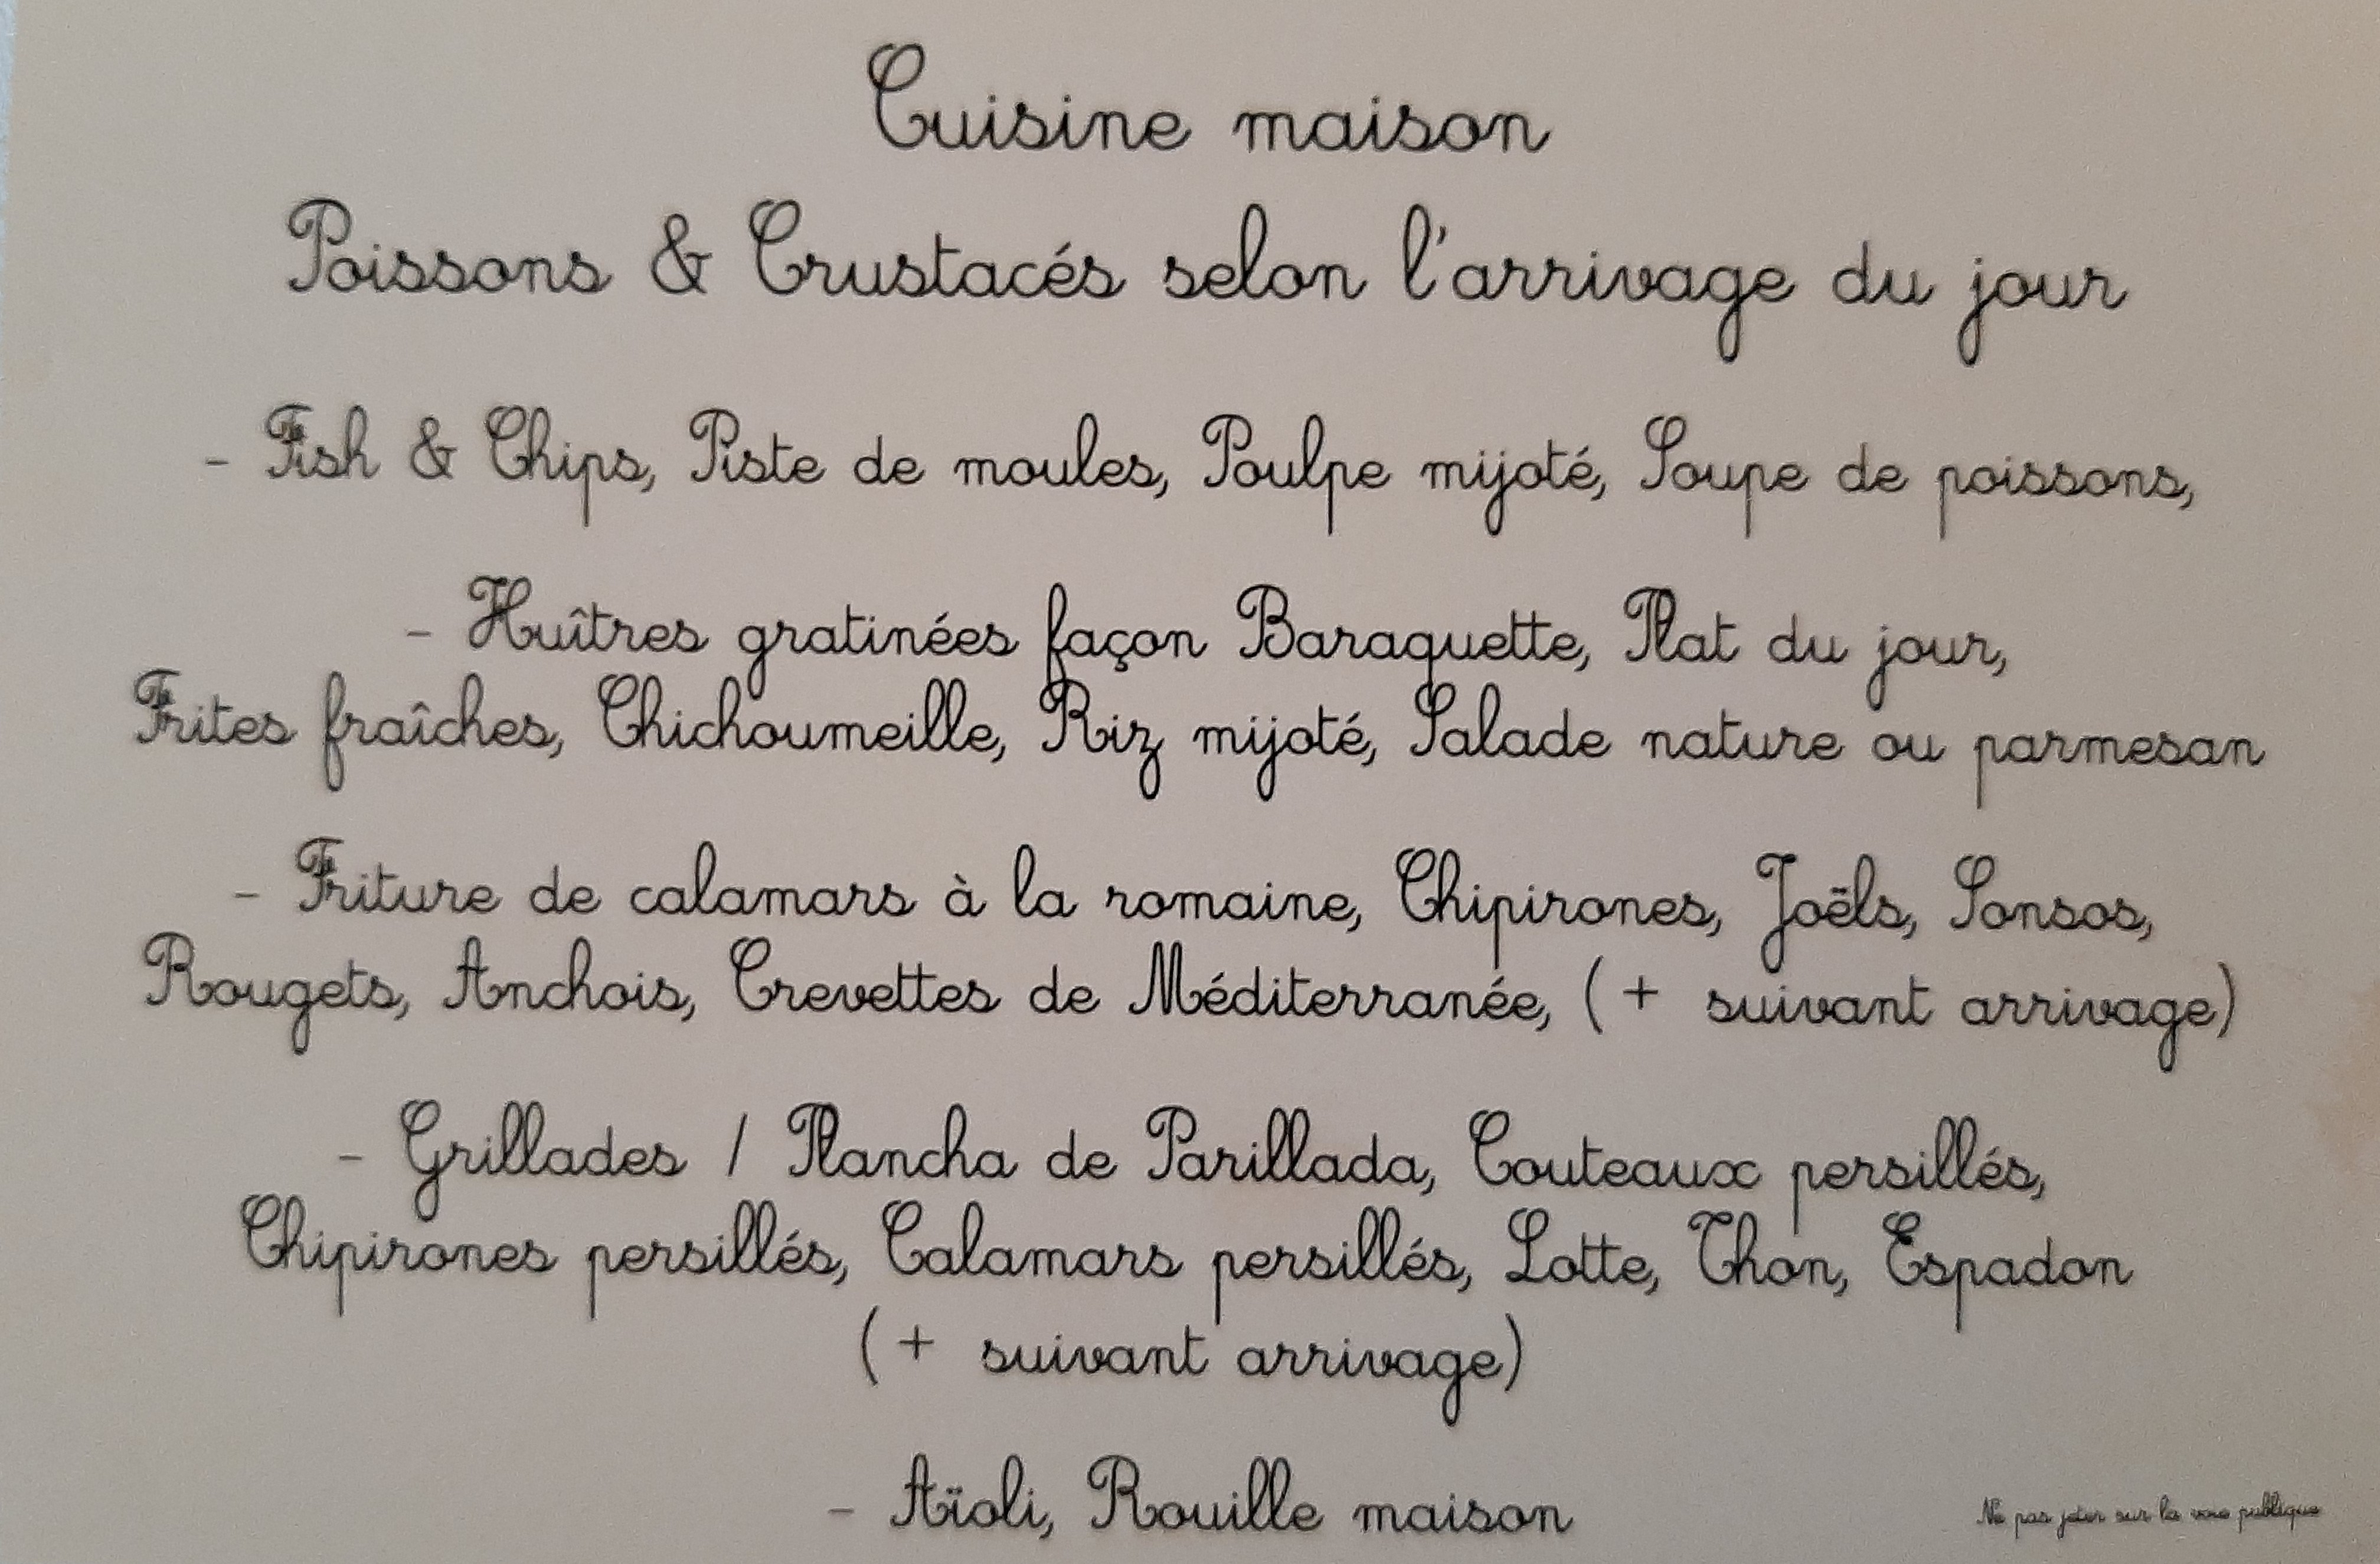 Cuisine maison
Poissons & Crustacés selon l'arrivage du jour
- Fish & Chips, Piste de moules, Poulpe mijoté, Soupe de poissons,
- Huîtres gratinées façon Baraquette, Plat du jour,
Frites fraîches, Chichoumeille, Riz mijoté, Salade nature ou parmesan
- Friture de calamars à la romaine, Chipirones, Joëls, Sonsos,
Rougets, Anchois, Crevettes de Méditerranée, (+ suivant arrivage)
- Grillades / Plancha de Parillada, Couteaux persillés,
Chipirones persillés, Calamars persillés, Lotte, Thon, Espadon
(+ suivant arrivage)
- Aïoli, Rouille maison
Ne pas jeter sur la voie publique